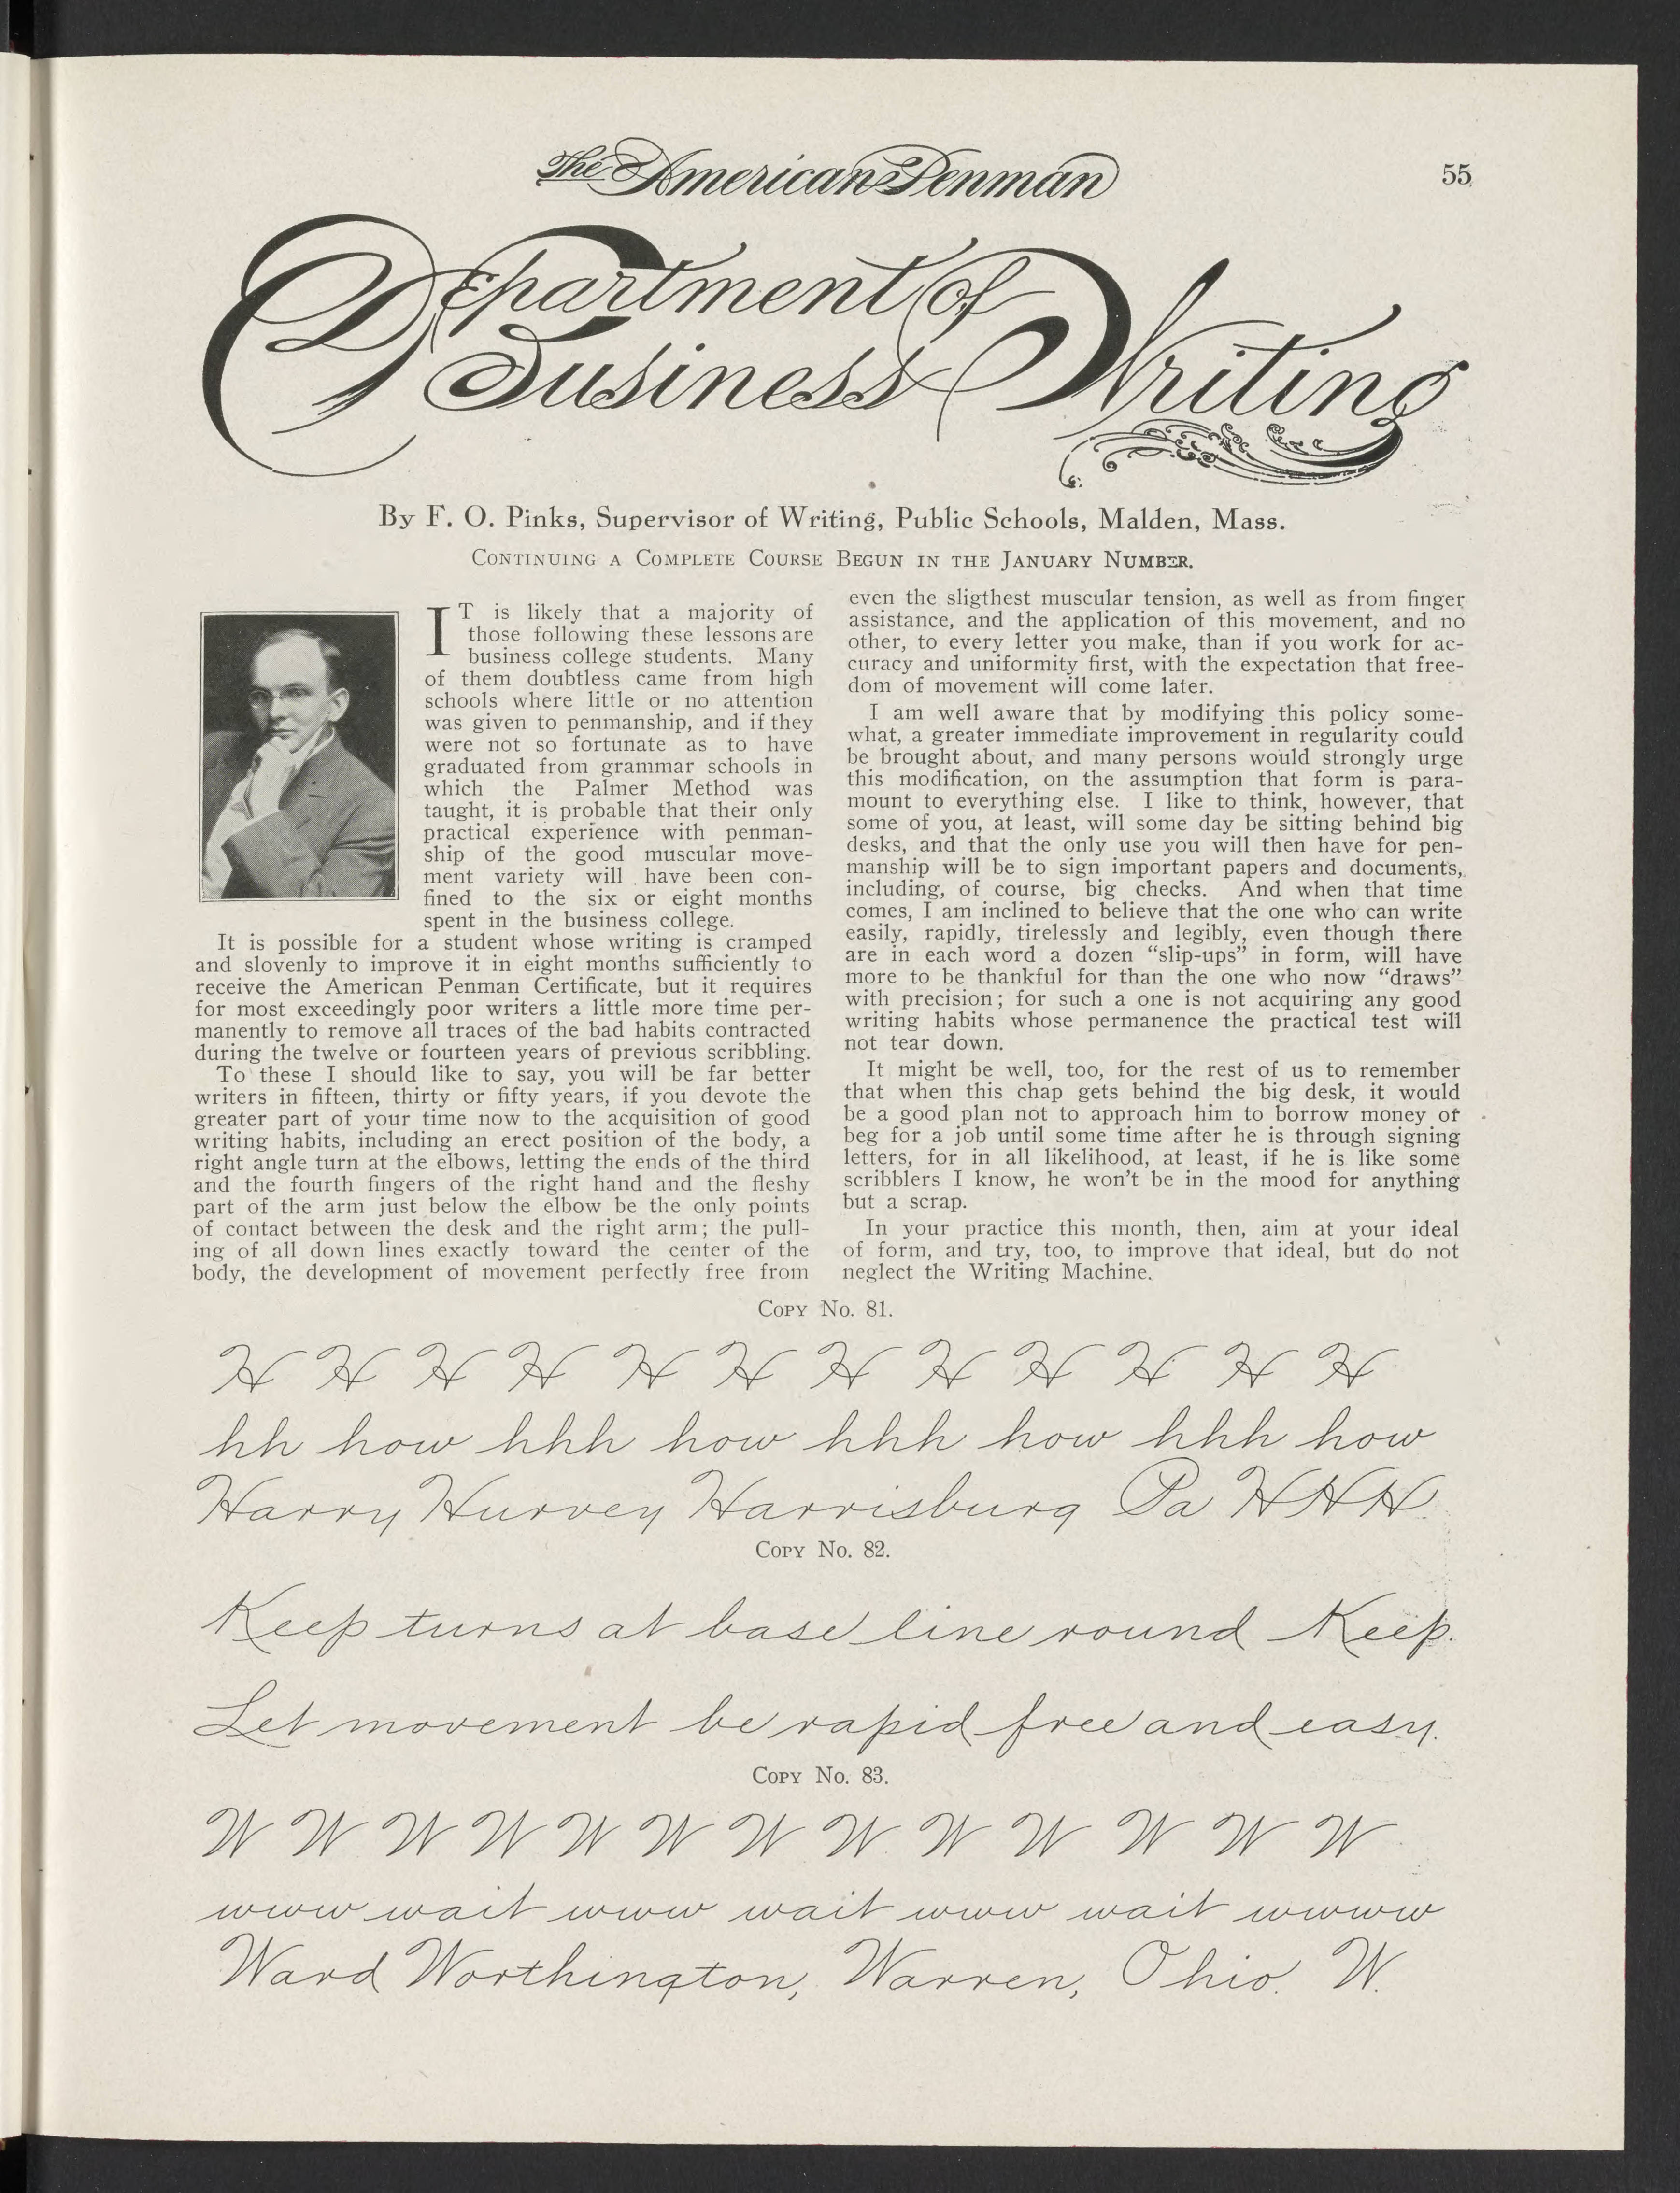 The American Penman
55
Department of
Business Writing
By F. O. Pinks, Supervisor of Writing, Public Schools, Malden, Mass.
Continuing a Complete Course Begun in the January Number.
IT is likely that a majority of
those following these lessons are
business college students. Many
of them doubtless came from high
schools where little or no attention
was given to penmanship, and if they
were not so fortunate as to have
graduated from grammar schools in
which the Palmer Method was
taught, it is probable that their only
practical experience with penman-
ship of the good muscular move-
ment variety will have been con-
fined to the six or eight months
spent in the business college.
It is possible for a student whose writing is cramped
and slovenly to improve it in eight months sufficiently to
receive the American Penman Certificate, but it requires
for most exceedingly poor writers a little more time per-
manently to remove all traces of the bad habits contracted
during the twelve or fourteen years of previous scribbling.
To these I should like to say, you will be far better
writers in fifteen, thirty or fifty years, if you devote the
greater part of your time now to the acquisition of good
writing habits, including an erect position of the body, a
right angle turn at the elbows, letting the ends of the third
and the fourth fingers of the right hand and the fleshy
part of the arm just below the elbow be the only points
of contact between the desk and the right arm; the pull-
ing of all down lines exactly toward the center of the
body, the development of movement perfectly free from
even the sligthest muscular tension, as well as from finger
assistance, and the application of this movement, and no
other, to every letter you make, than if you work for ac-
curacy and uniformity first, with the expectation that free-
dom of movement will come later.
I am well aware that by modifying this policy some-
what, a greater immediate improvement in regularity could
be brought about, and many persons would strongly urge
this modification, on the assumption that form is para-
mount to everything else. I like to think, however, that
some of you, at least, will some day be sitting behind big
desks, and that the only use you will then have for pen-
manship will be to sign important papers and documents,
including, of course, big checks. And when that time
comes, I am inclined to believe that the one who can write
easily, rapidly, tirelessly and legibly, even though there
are in each word a dozen “slip-ups” in form, will have
more to be thankful for than the one who now “draws”
with precision; for such a one is not acquiring any good
writing habits whose permanence the practical test will
not tear down.
It might be well, too, for the rest of us to remember
that when this chap gets behind the big desk, it would
be a good plan not to approach him to borrow money or
beg for a job until some time after he is through signing
letters, for in all likelihood, at least, if he is like some
scribblers I know, he won't be in the mood for anything
but a scrap.
In your practice this month, then, aim at your ideal
of form, and try, too, to improve that ideal, but do not
neglect the Writing Machine.
Copy No. 81.
H H H H H H H H H H H H
hh how hhh how hhh how hhh how
Harry Hurvey Harrisburg Pa HHH
Copy No. 82.
Keep turns at base line round Keep.
Let movement be rapid free and easy.
Copy No. 83.
W W W W W W W W W W W W W
www wait www wait www wait wwww
Ward Worthington, Warren, Ohio. W.